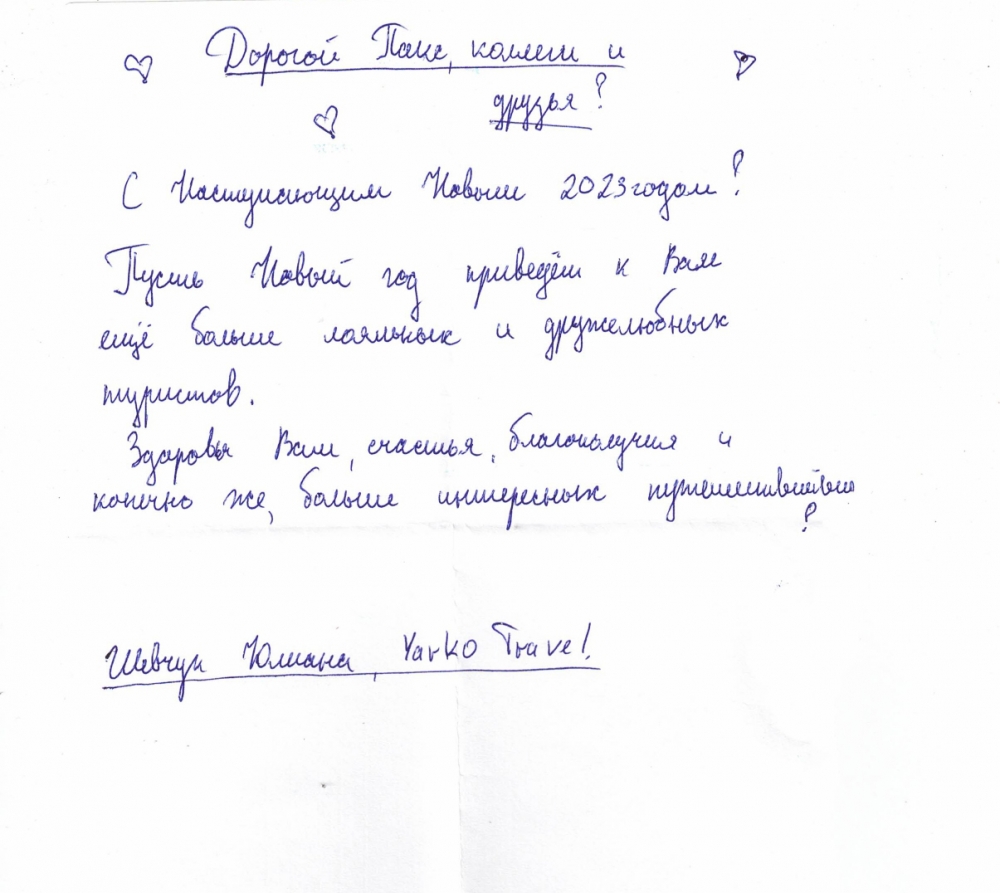 Дорогой Пакс, коллеги и
друзья!
С Наступающим Новым 2023 годом!
Пусть Новый год приведёт к Вам
ещё больше лояльных и дружелюбных
туристов.
Здоровья Вам, счастья, благополучия и
конечно же, больше интересных путешествий
!
Шевчук Юлиана, Yarko Travel.